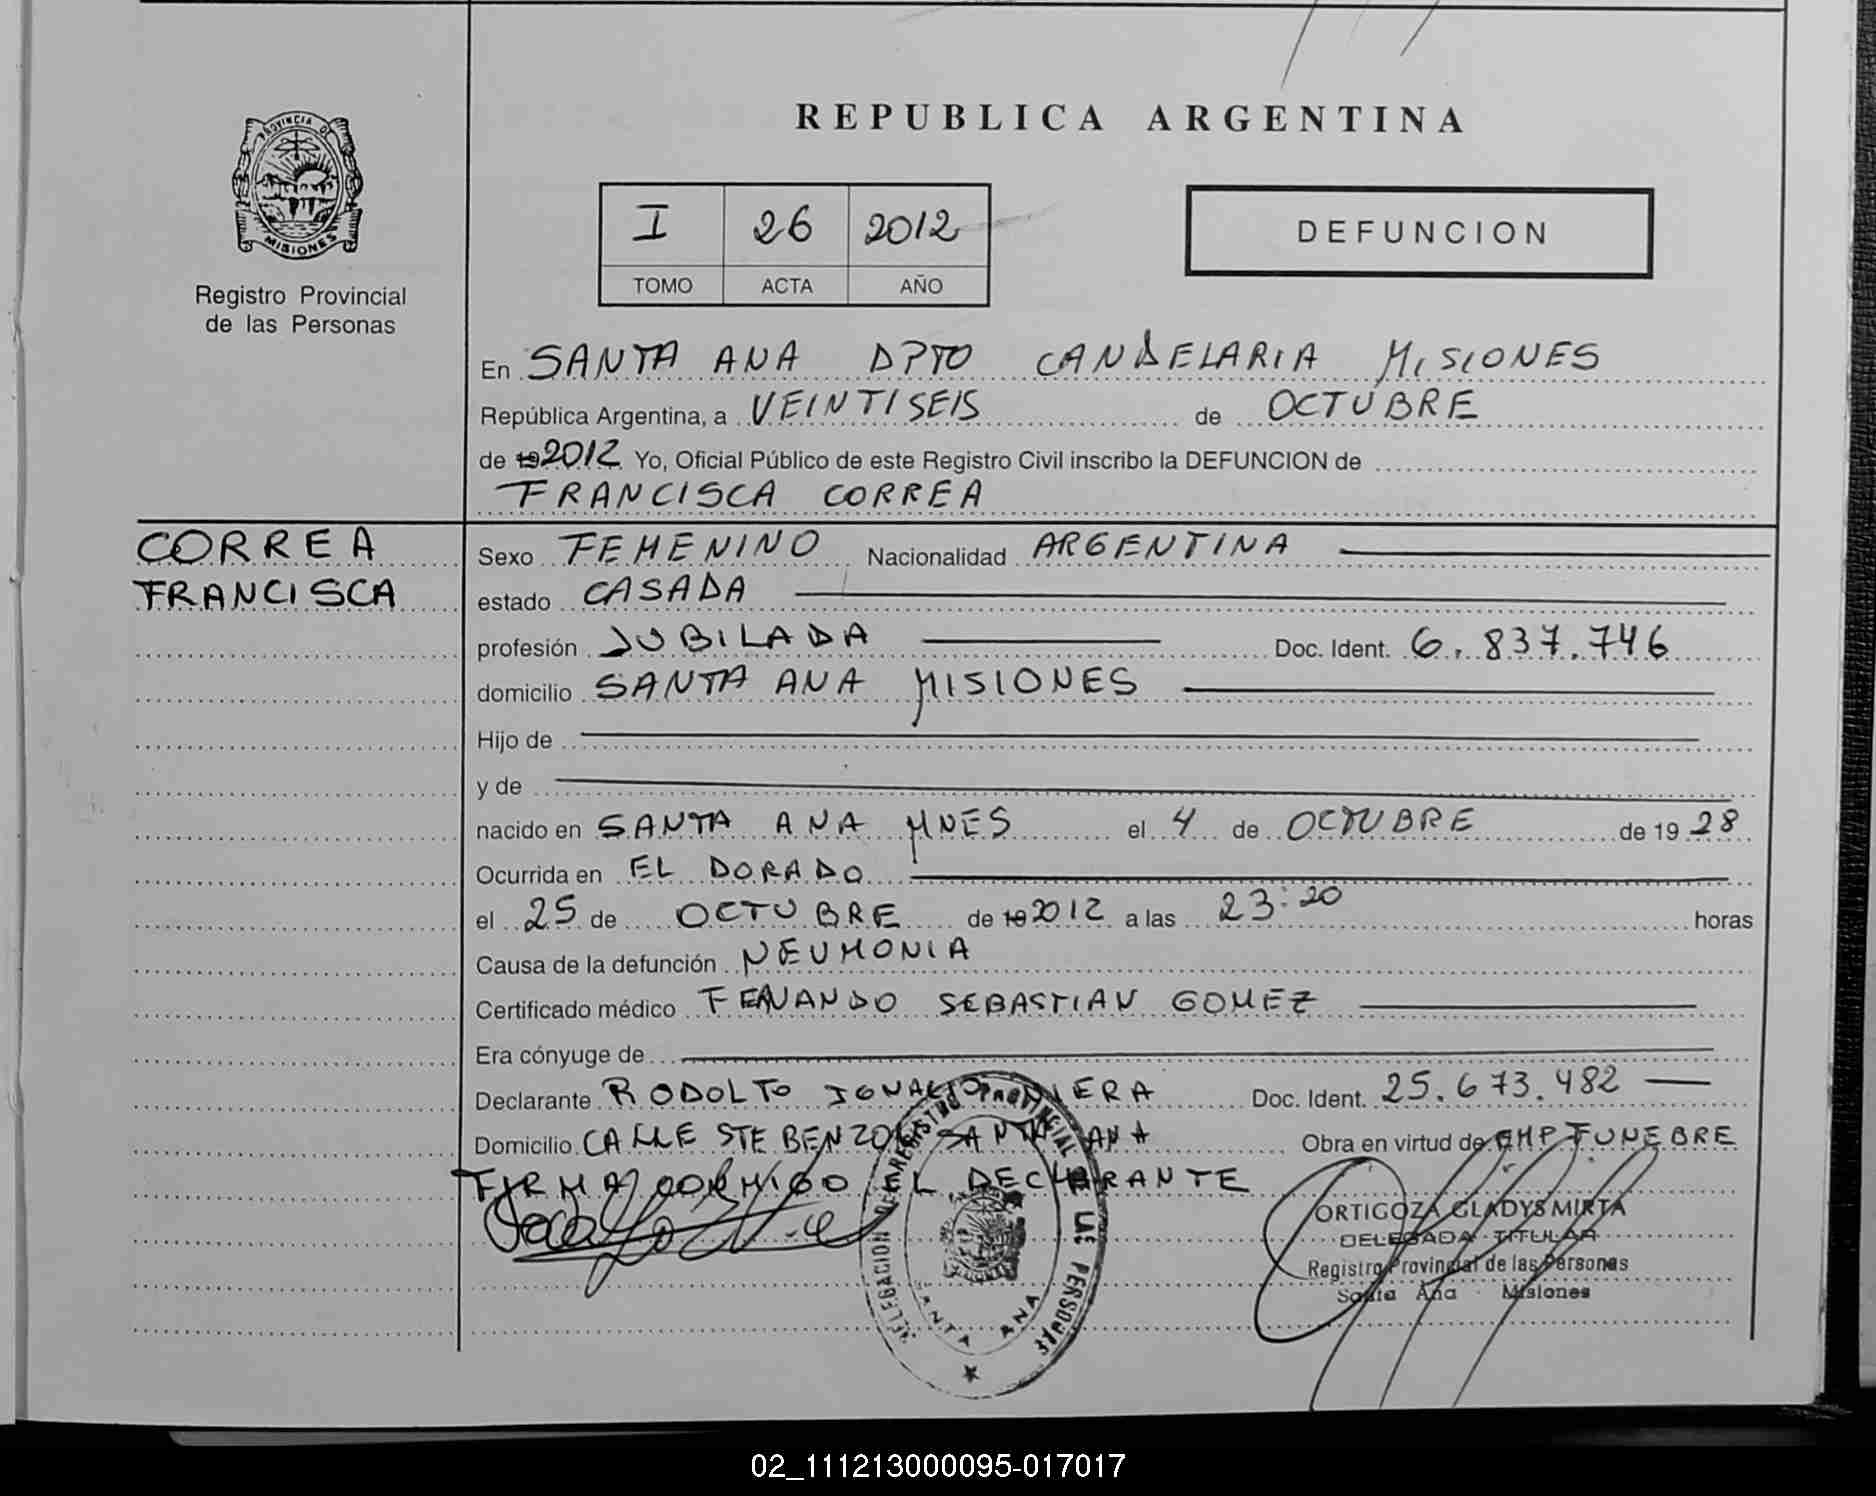 REPUBLICA ARGENTINA
PROVINCIA DE
MISIONES
Registro Provincial
de las Personas
I 26 2012
TOMO ACTA AÑO
DEFUNCION
En SANTA ANA DPTO CANDELARIA MISIONES
República Argentina, a VEINTISEIS de OCTUBRE
de 19 2012 Yo, Oficial Público de este Registro Civil inscribo la DEFUNCION de
FRANCISCA CORREA
CORREA
FRANCISCA
Sexo FEMENINO Nacionalidad ARGENTINA
estado CASADA
profesión JUBILADA Doc. Ident. 6.837.746
domicilio SANTA ANA MISIONES
Hijo de
y de
nacido en SANTA ANA MNES el 4 de OCTUBRE de 19 28
Ocurrida en EL DORADO
el 25 de OCTUBRE de 19 2012 a las 23:20 horas
Causa de la defunción NEUMONIA
Certificado médico FENANDO SEBASTIAN GOMEZ
Era cónyuge de
Declarante RODOLTO IGNACIO Doc. Ident. 25.673.482
Domicilio CALLE STE BENZON SANTA ANA Obra en virtud de EMP FUNEBRE
FIRMA CONMIGO EL DECLARANTE
DELEGACION DE REGISTRO PROVINCIAL DE LAS PERSONAS
SANTA ANA
ORTIGOZA GLADYS MIRTA
DELEGADA TITULAR
Registro Provincial de las Personas
Santa Ana - Misiones
02_111213000095-017017